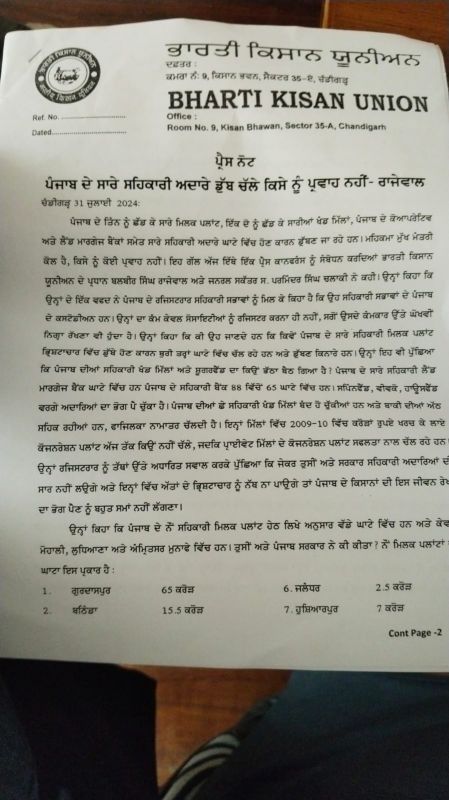 ਭਾਰਤੀ ਕਿਸਾਨ ਯੂਨੀਅਨ
ਦਫ਼ਤਰ :
ਕਮਰਾ ਨੰ: 9, ਕਿਸਾਨ ਭਵਨ, ਸੈਕਟਰ 35-ਏ, ਚੰਡੀਗੜ੍ਹ
BHARTI KISAN UNION
Ref. No. ........................
Office :
Dated............................
Room No. 9, Kisan Bhawan, Sector 35-A, Chandigarh
ਪ੍ਰੈਸ ਨੋਟ
ਪੰਜਾਬ ਦੇ ਸਾਰੇ ਸਹਿਕਾਰੀ ਅਦਾਰੇ ਡੁੱਬ ਚੱਲੇ ਕਿਸੇ ਨੂੰ ਪ੍ਰਵਾਹ ਨਹੀਂ- ਰਾਜੇਵਾਲ
ਚੰਡੀਗੜ੍ਹ 31 ਜੁਲਾਈ 2024:
ਪੰਜਾਬ ਦੇ ਤਿੰਨ ਨੂੰ ਛੱਡ ਕੇ ਸਾਰੇ ਮਿਲਕ ਪਲਾਂਟ, ਇੱਕ ਦੋ ਨੂੰ ਛੱਡ ਕੇ ਸਾਰੀਆਂ ਖੰਡ ਮਿੱਲਾਂ, ਪੰਜਾਬ ਦੇ ਕੋਆਪਰੇਟਿਵ
ਅਤੇ ਲੈਂਡ ਮਾਰਗੇਜ ਬੈਂਕਾਂ ਸਮੇਤ ਸਾਰੇ ਸਹਿਕਾਰੀ ਅਦਾਰੇ ਘਾਟੇ ਵਿੱਚ ਹੋਣ ਕਾਰਨ ਡੁੱਬਣ ਜਾ ਰਹੇ ਹਨ। ਮਹਿਕਮਾ ਮੁੱਖ ਮੰਤਰੀ
ਕੋਲ ਹੈ, ਕਿਸੇ ਨੂੰ ਕੋਈ ਪ੍ਰਵਾਹ ਨਹੀਂ। ਇਹ ਗੱਲ ਅੱਜ ਇੱਥੇ ਇੱਕ ਪ੍ਰੈਸ ਕਾਨਫਰੰਸ ਨੂੰ ਸੰਬੋਧਨ ਕਰਦਿਆਂ ਭਾਰਤੀ ਕਿਸਾਨ
ਯੂਨੀਅਨ ਦੇ ਪ੍ਰਧਾਨ ਬਲਬੀਰ ਸਿੰਘ ਰਾਜੇਵਾਲ ਅਤੇ ਜਨਰਲ ਸਕੱਤਰ ਸ. ਪਰਮਿੰਦਰ ਸਿੰਘ ਚਲਾਕੀ ਨੇ ਕਹੀ। ਉਨ੍ਹਾਂ ਕਿਹਾ ਕਿ
ਉਨ੍ਹਾਂ ਦੇ ਇੱਕ ਵਫਦ ਨੇ ਪੰਜਾਬ ਦੇ ਰਜਿਸਟਰਾਰ ਸਹਿਕਾਰੀ ਸਭਾਵਾਂ ਨੂੰ ਮਿਲ ਕੇ ਕਿਹਾ ਹੈ ਕਿ ਉਹ ਸਹਿਕਾਰੀ ਸਭਾਵਾਂ ਦੇ ਪੰਜਾਬ
ਦੇ ਕਸਟੋਡੀਅਨ ਹਨ। ਉਨ੍ਹਾਂ ਦਾ ਕੰਮ ਕੇਵਲ ਸੋਸਾਇਟੀਆਂ ਨੂੰ ਰਜਿਸਟਰ ਕਰਨਾ ਹੀ ਨਹੀਂ, ਸਗੋਂ ਉਸਦੇ ਕੰਮਕਾਰ ਉੱਤੇ ਘੋਖਵੀਂ
ਨਿਗ੍ਹਾ ਰੱਖਣਾ ਵੀ ਹੁੰਦਾ ਹੈ। ਉਨ੍ਹਾਂ ਕਿਹਾ ਕਿ ਕੀ ਉਹ ਜਾਣਦੇ ਹਨ ਕਿ ਕਿਵੇਂ ਪੰਜਾਬ ਦੇ ਸਾਰੇ ਸਹਿਕਾਰੀ ਮਿਲਕ ਪਲਾਂਟ
ਭ੍ਰਿਸ਼ਟਾਚਾਰ ਵਿੱਚ ਡੁੱਬੇ ਹੋਣ ਕਾਰਨ ਬੁਰੀ ਤਰ੍ਹਾਂ ਘਾਟੇ ਵਿੱਚ ਚੱਲ ਰਹੇ ਹਨ ਅਤੇ ਡੁੱਬਣ ਕਿਨਾਰੇ ਹਨ। ਉਨ੍ਹਾਂ ਇਹ ਵੀ ਪੁੱਛਿਆ
ਕਿ ਪੰਜਾਬ ਦੀਆਂ ਸਹਿਕਾਰੀ ਖੰਡ ਮਿੱਲਾਂ ਅਤੇ ਸ਼ੂਗਰਫੈੱਡ ਦਾ ਕਿਉਂ ਭੱਠਾ ਬੈਠ ਗਿਆ ਹੈ ? ਪੰਜਾਬ ਦੇ ਸਾਰੇ ਸਹਿਕਾਰੀ ਲੈਂਡ
ਮਾਰਗੇਜ ਬੈਂਕ ਘਾਟੇ ਵਿੱਚ ਹਨ ਪੰਜਾਬ ਦੇ ਸਹਿਕਾਰੀ ਬੈਂਕ 88 ਵਿੱਚੋਂ 65 ਘਾਟੇ ਵਿੱਚ ਹਨ। ਸਪਿਨਫੈੱਡ, ਵੀਵਕੋ, ਹਾਊਸਫੈੱਡ
ਵਰਗੇ ਅਦਾਰਿਆਂ ਦਾ ਭੋਗ ਪੈ ਚੁੱਕਾ ਹੈ। ਪੰਜਾਬ ਦੀਆਂ ਛੇ ਸਹਿਕਾਰੀ ਖੰਡ ਮਿੱਲਾਂ ਬੰਦ ਹੋ ਚੁੱਕੀਆਂ ਹਨ ਅਤੇ ਬਾਕੀ ਦੀਆਂ ਅੱਠ
ਸਹਿਕ ਰਹੀਆਂ ਹਨ, ਫਾਜਿਲਕਾ ਨਾਮਾਤਰ ਚੱਲਦੀ ਹੈ। ਇਨ੍ਹਾਂ ਮਿੱਲਾਂ ਵਿੱਚ 2009-10 ਵਿੱਚ ਕਰੋੜਾਂ ਰੁਪਏ ਖਰਚ ਕੇ ਲਾਏ
ਕੋਜਨਰੇਸ਼ਨ ਪਲਾਂਟ ਅੱਜ ਤੱਕ ਕਿਉਂ ਨਹੀਂ ਚੱਲੇ, ਜਦਕਿ ਪ੍ਰਾਈਵੇਟ ਮਿੱਲਾਂ ਦੇ ਕੋਜਨਰੇਸ਼ਨ ਪਲਾਂਟ ਸਫਲਤਾ ਨਾਲ ਚੱਲ ਰਹੇ ਹਨ।
ਉਨ੍ਹਾਂ ਰਜਿਸਟਰਾਰ ਨੂੰ ਤੱਥਾਂ ਉੱਤੇ ਅਧਾਰਿਤ ਸਵਾਲ ਕਰਕੇ ਪੁੱਛਿਆ ਕਿ ਜੇਕਰ ਤੁਸੀਂ ਅਤੇ ਸਰਕਾਰ ਸਹਿਕਾਰੀ ਅਦਾਰਿਆਂ ਦੀ
ਸਾਰ ਨਹੀਂ ਲਉਗੇ ਅਤੇ ਇਨ੍ਹਾਂ ਵਿੱਚ ਅੰਤਾਂ ਦੇ ਭ੍ਰਿਸ਼ਟਾਚਾਰ ਨੂੰ ਨੱਥ ਨਾ ਪਾਉਗੇ ਤਾਂ ਪੰਜਾਬ ਦੇ ਕਿਸਾਨਾਂ ਦੀ ਇਸ ਜੀਵਨ
ਦਾ ਭੋਗ ਪੈਣ ਨੂੰ ਬਹੁਤ ਸਮਾਂ ਨਹੀਂ ਲੱਗਣਾ।
ਉਨ੍ਹਾਂ ਕਿਹਾ ਕਿ ਪੰਜਾਬ ਦੇ ਨੌਂ ਸਹਿਕਾਰੀ ਮਿਲਕ ਪਲਾਂਟ ਹੇਠ ਲਿਖੇ ਅਨੁਸਾਰ ਵੱਡੇ ਘਾਟੇ ਵਿੱਚ ਹਨ ਅਤੇ
ਮੋਹਾਲੀ, ਲੁਧਿਆਣਾ ਅਤੇ ਅੰਮ੍ਰਿਤਸਰ ਮੁਨਾਫੇ ਵਿੱਚ ਹਨ। ਤੁਸੀਂ ਅਤੇ ਪੰਜਾਬ ਸਰਕਾਰ ਨੇ ਕੀ ਕੀਤਾ ? ਨੌਂ ਮਿਲਕ ਪਲਾਂਟਾਂ
ਘਾਟਾ ਇਸ ਪ੍ਰਕਾਰ ਹੈ :
1. ਗੁਰਦਾਸਪੁਰ 65 ਕਰੋੜ 6. ਜਲੰਧਰ 2.5 ਕਰੋੜ
2. ਬਠਿੰਡਾ 15.5 ਕਰੋੜ 7. ਹੁਸ਼ਿਆਰਪੁਰ 7 ਕਰੋੜ
Cont Page -2